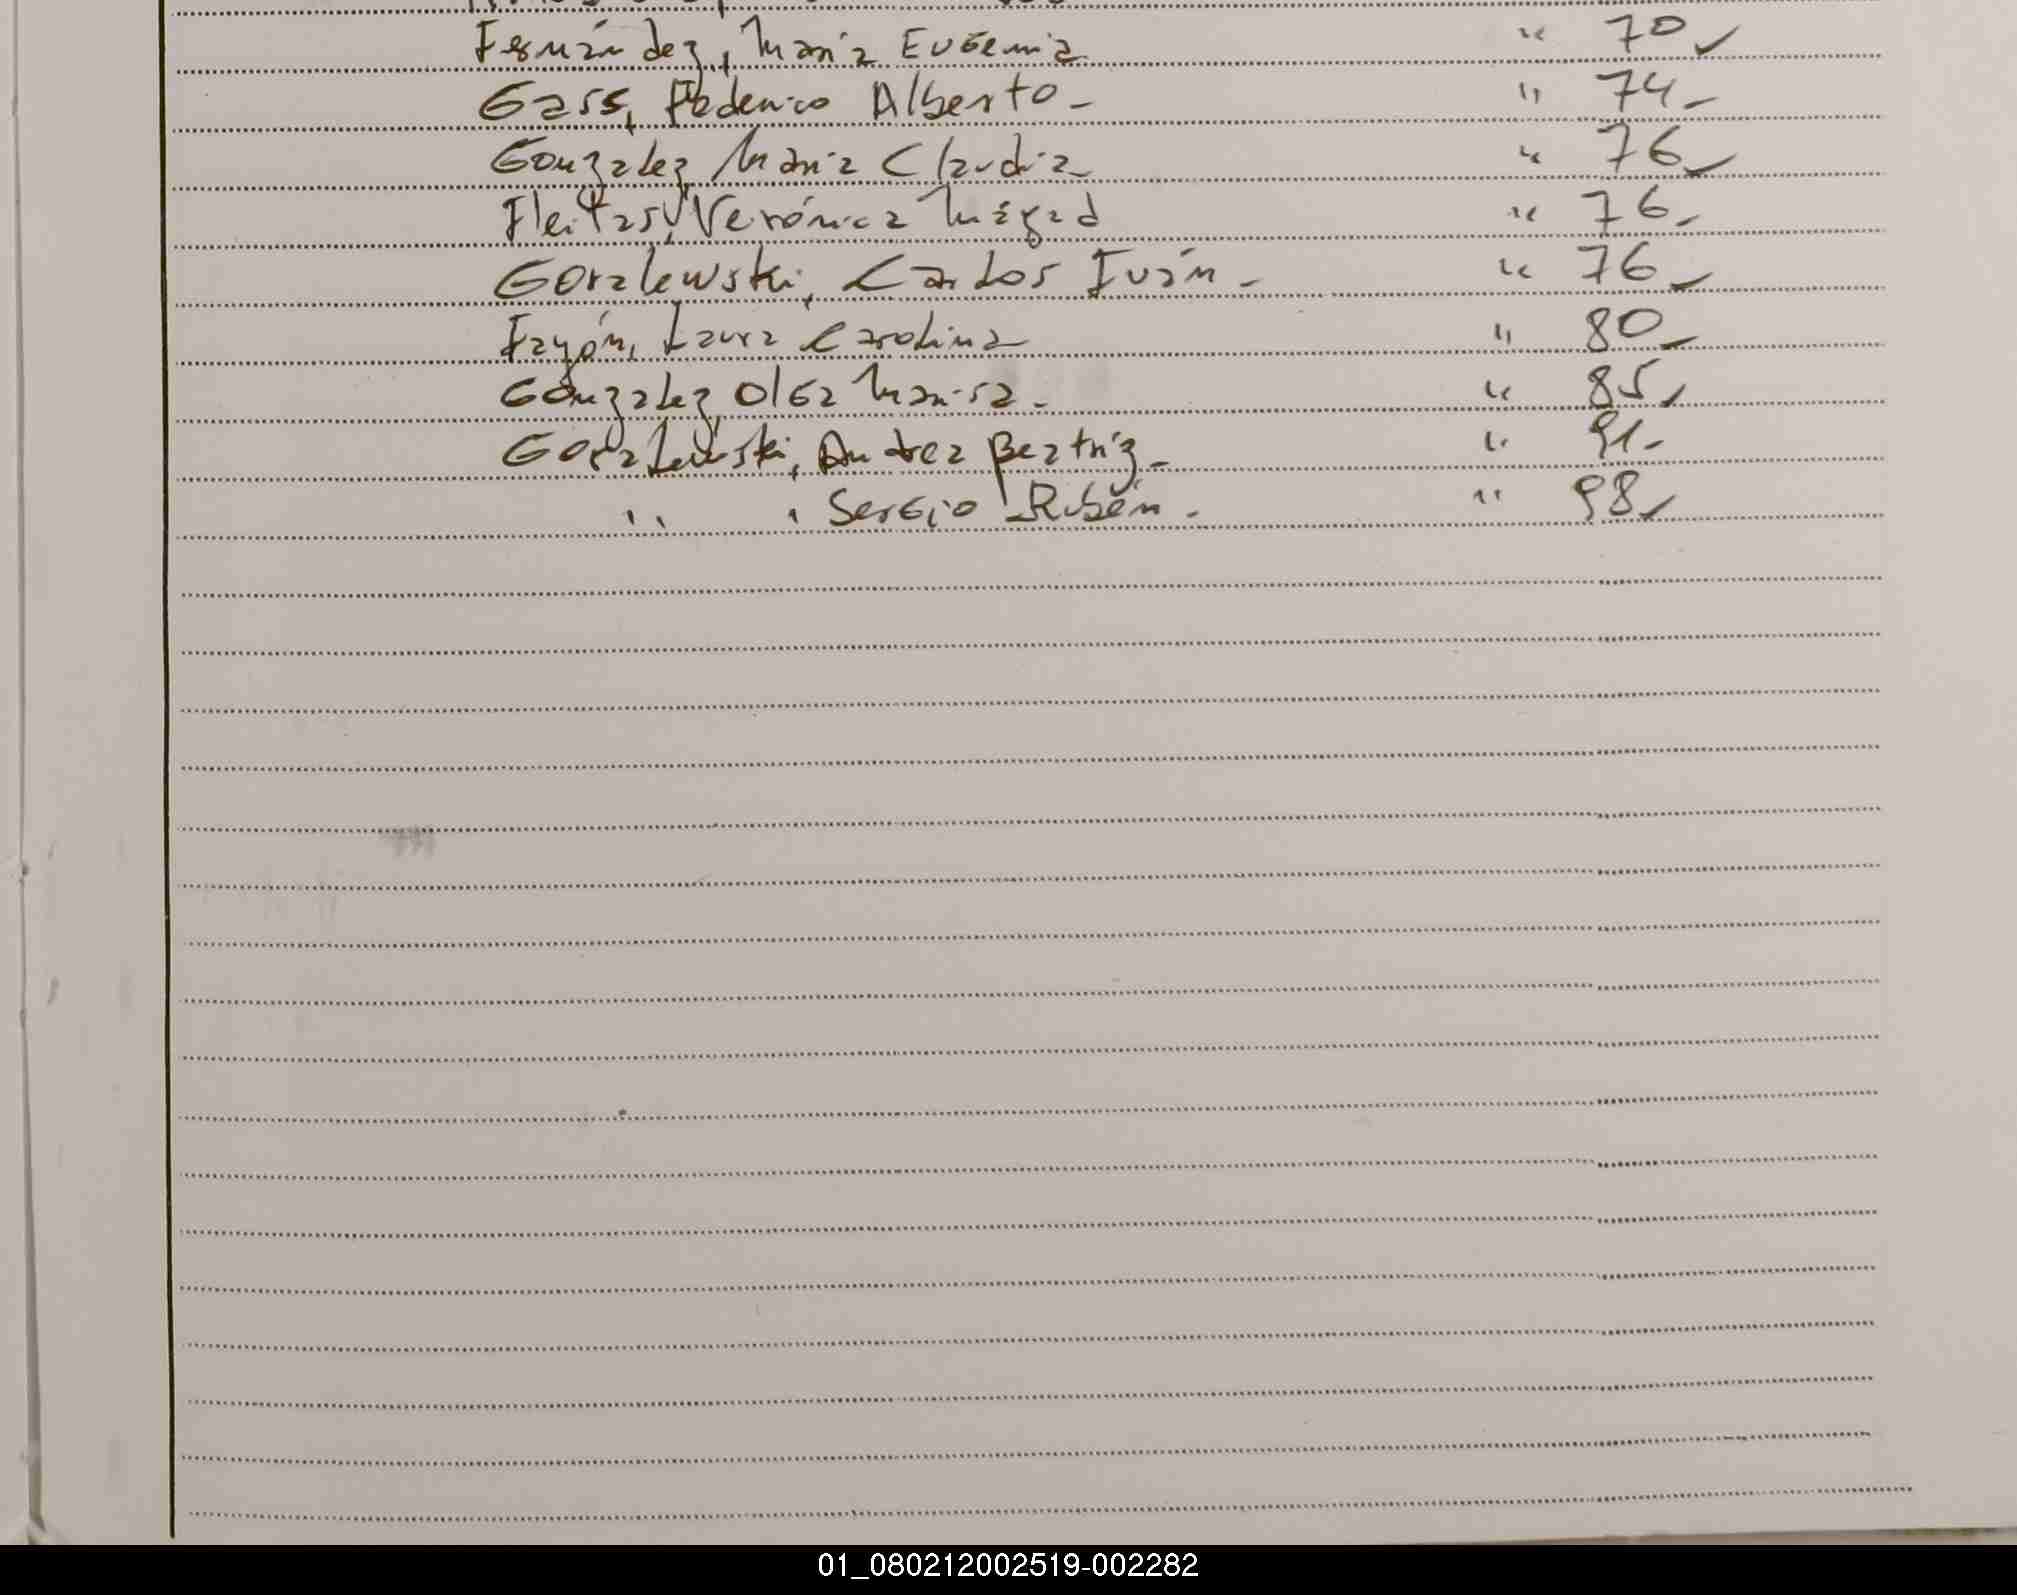 Fernández, María Eugenia " 70
Gass, Federico Alberto - " 74 -
Gonzalez, María Claudia " 76
Fleitas, Verónica " 76 -
Goralewski, Carlos Iván - " 76
Fayón, Laura Carolina " 80 -
González, Olga Marisa - " 85
Goralewski, Andrea Beatriz - " 91 -
" , Sergio Rubén - " 98
01_080212002519-002282